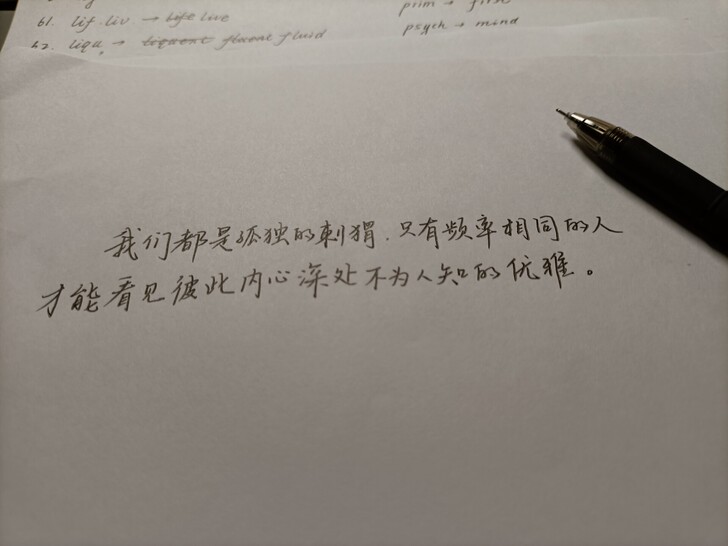 61. lif. liv → life live
prim → first
62. liqu, → liquent fluent fluid
psych → mind
我们都是孤独的刺猬.只有频率相同的人
才能看见彼此内心深处不为人知的优雅。